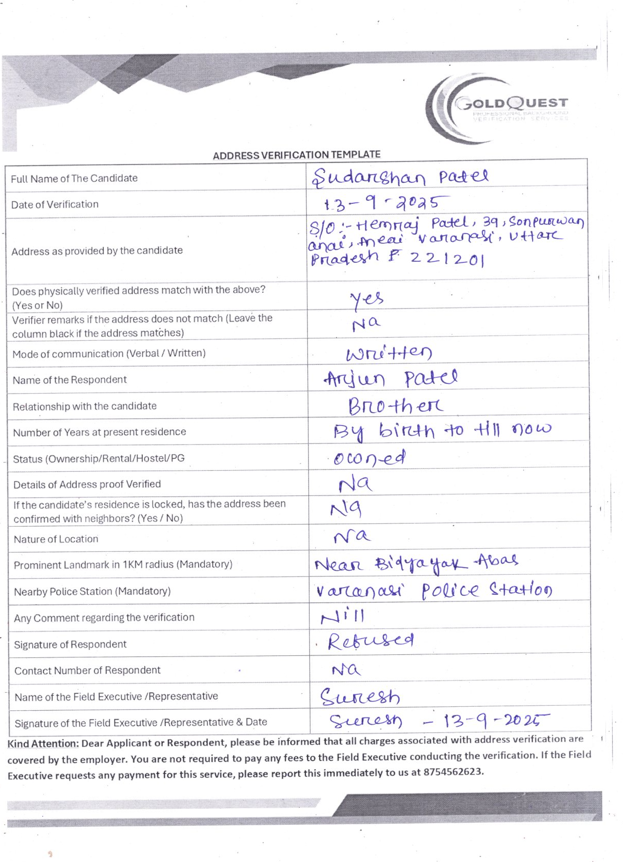 GOLDQUEST
PROFESSIONAL BACKGROUND
VERIFICATION SERVICES
ADDRESS VERIFICATION TEMPLATE
Full Name of The Candidate Sudarshan Patel
Date of Verification 13-9-2025
S/O:- Hemraj Patel, 39, Sonpurwan
Address as provided by the candidate anai, Aneai Varanasi, Uttare
Pradesh F 221201
Does physically verified address match with the above?
(Yes or No) Yes
Verifier remarks if the address does not match (Leave the
column black if the address matches) Na
Mode of communication (Verbal / Written) Written
Name of the Respondent Arjun Patel
Relationship with the candidate Brother
Number of Years at present residence By birth to till now
Status (Ownership/Rental/Hostel/PG ocwned
Details of Address proof Verified Na
If the candidate's residence is locked, has the address been
confirmed with neighbors? (Yes / No) Na
Nature of Location Na
Prominent Landmark in 1KM radius (Mandatory) Near Bidyayak Abas
Nearby Police Station (Mandatory) Varanasi Police Station
Any Comment regarding the verification Nill
Signature of Respondent Refused
Contact Number of Respondent Na
Name of the Field Executive /Representative Suresh
Signature of the Field Executive /Representative & Date Suresh - 13-9-2025
Kind Attention: Dear Applicant or Respondent, please be informed that all charges associated with address verification are
covered by the employer. You are not required to pay any fees to the Field Executive conducting the verification. If the Field
Executive requests any payment for this service, please report this immediately to us at 8754562623.